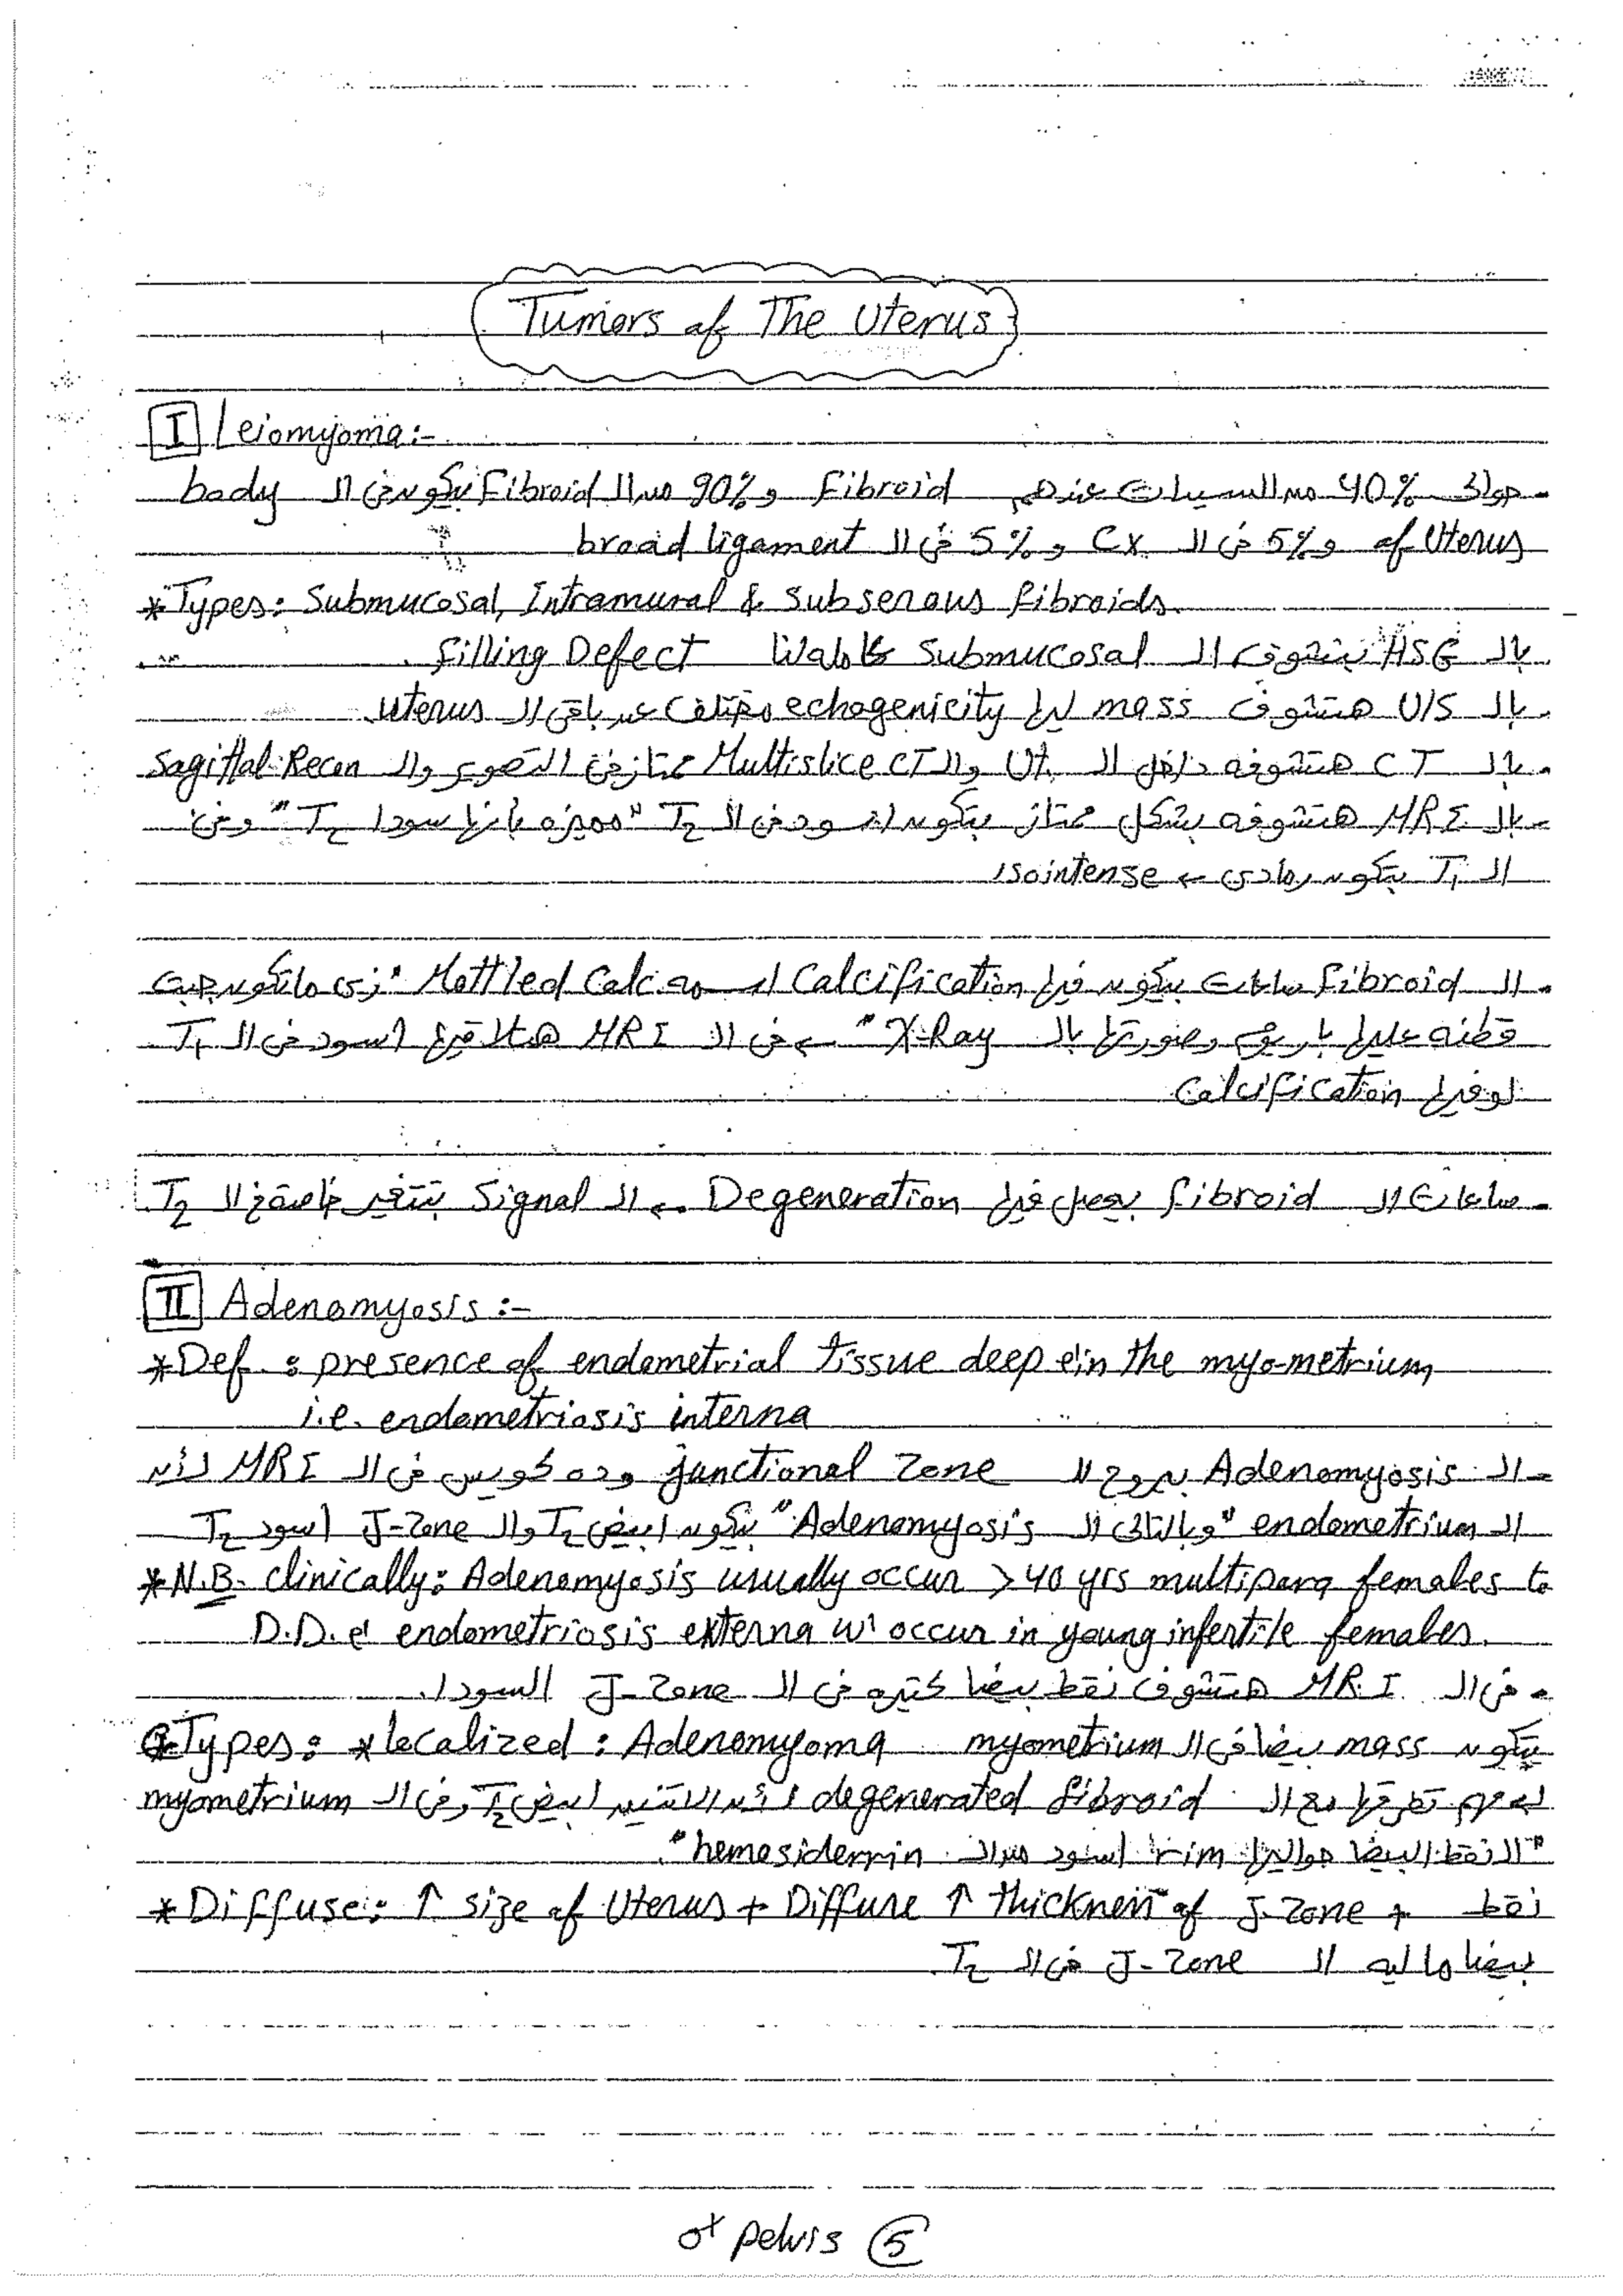 Tumors of The Uterus
I Leiomyoma:-
- حوالى 40% من السيدات عندهم Fibroid و 90% من ال Fibroid بيكون فى ال body
of Uterus و 5% فى ال Cx و 5% فى ال broad ligament
* Types: Submucosal, Intramural & Subserous fibroids.
- بال HSG بنشوف ال Submucosal filling Defect
- بال U/S هنشوف mass ليها echogenicity مختلف عن باقى ال uterus.
- بال CT هنشوفه داخل ال Ut. وال Multislice CT ممتاز فى التصوير وال Sagittal Recon
- بال MRI هنشوفه بشكل ممتاز بيكون اسود فى ال T2 "مميزه بأنها سودا T2" وفى
ال T1 بيكون رمادى ← isointense
- ال fibroid ساعات بيكون فيها Calcification اسمه Mottled Calc. "زى ماتكون جبت
قطنه عليها باريوم وصورتها بال X-Ray" ← فى ال MRI هتلاقيها اسود فى ال T1
لو فيها Calcification
- ساعات ال fibroid بيحصل فيها Degeneration ← ال Signal بتتغير خاصة فى ال T2
II Adenomyosis :-
* Def. : presence of endometrial tissue deep in the myo-metrium
i.e. endometriosis interna
- ال Adenomyosis بيروح لل junctional Zone وده كويس فى ال MRI لأن
ال endometrium "وبالتالى ال Adenomyosis" بيكون ابيض T2 وال J-Zone اسود T2
* N.B. clinically: Adenomyosis usually occur > 40 yrs multipara females to
D.D. e' endometriosis externa w' occur in young infertile females.
- فى ال MRI هنشوف نقط بيضا كتيره فى ال J-Zone السودا.
Types: * localized : Adenomyoma بيكون mass بيضا فى ال myometrium
لازم تفرقها مع ال degenerated fibroid لأن الاتنين ابيض T2 وفى ال myometrium
"النقط البيضا حواليها rim اسود من ال hemosiderrin".
* Diffuse: ↑ size of Uterus + Diffuse ↑ thickness of J-Zone + نقط
بيضا ماليه ال J-Zone فى ال T2
♂ pelvis 5